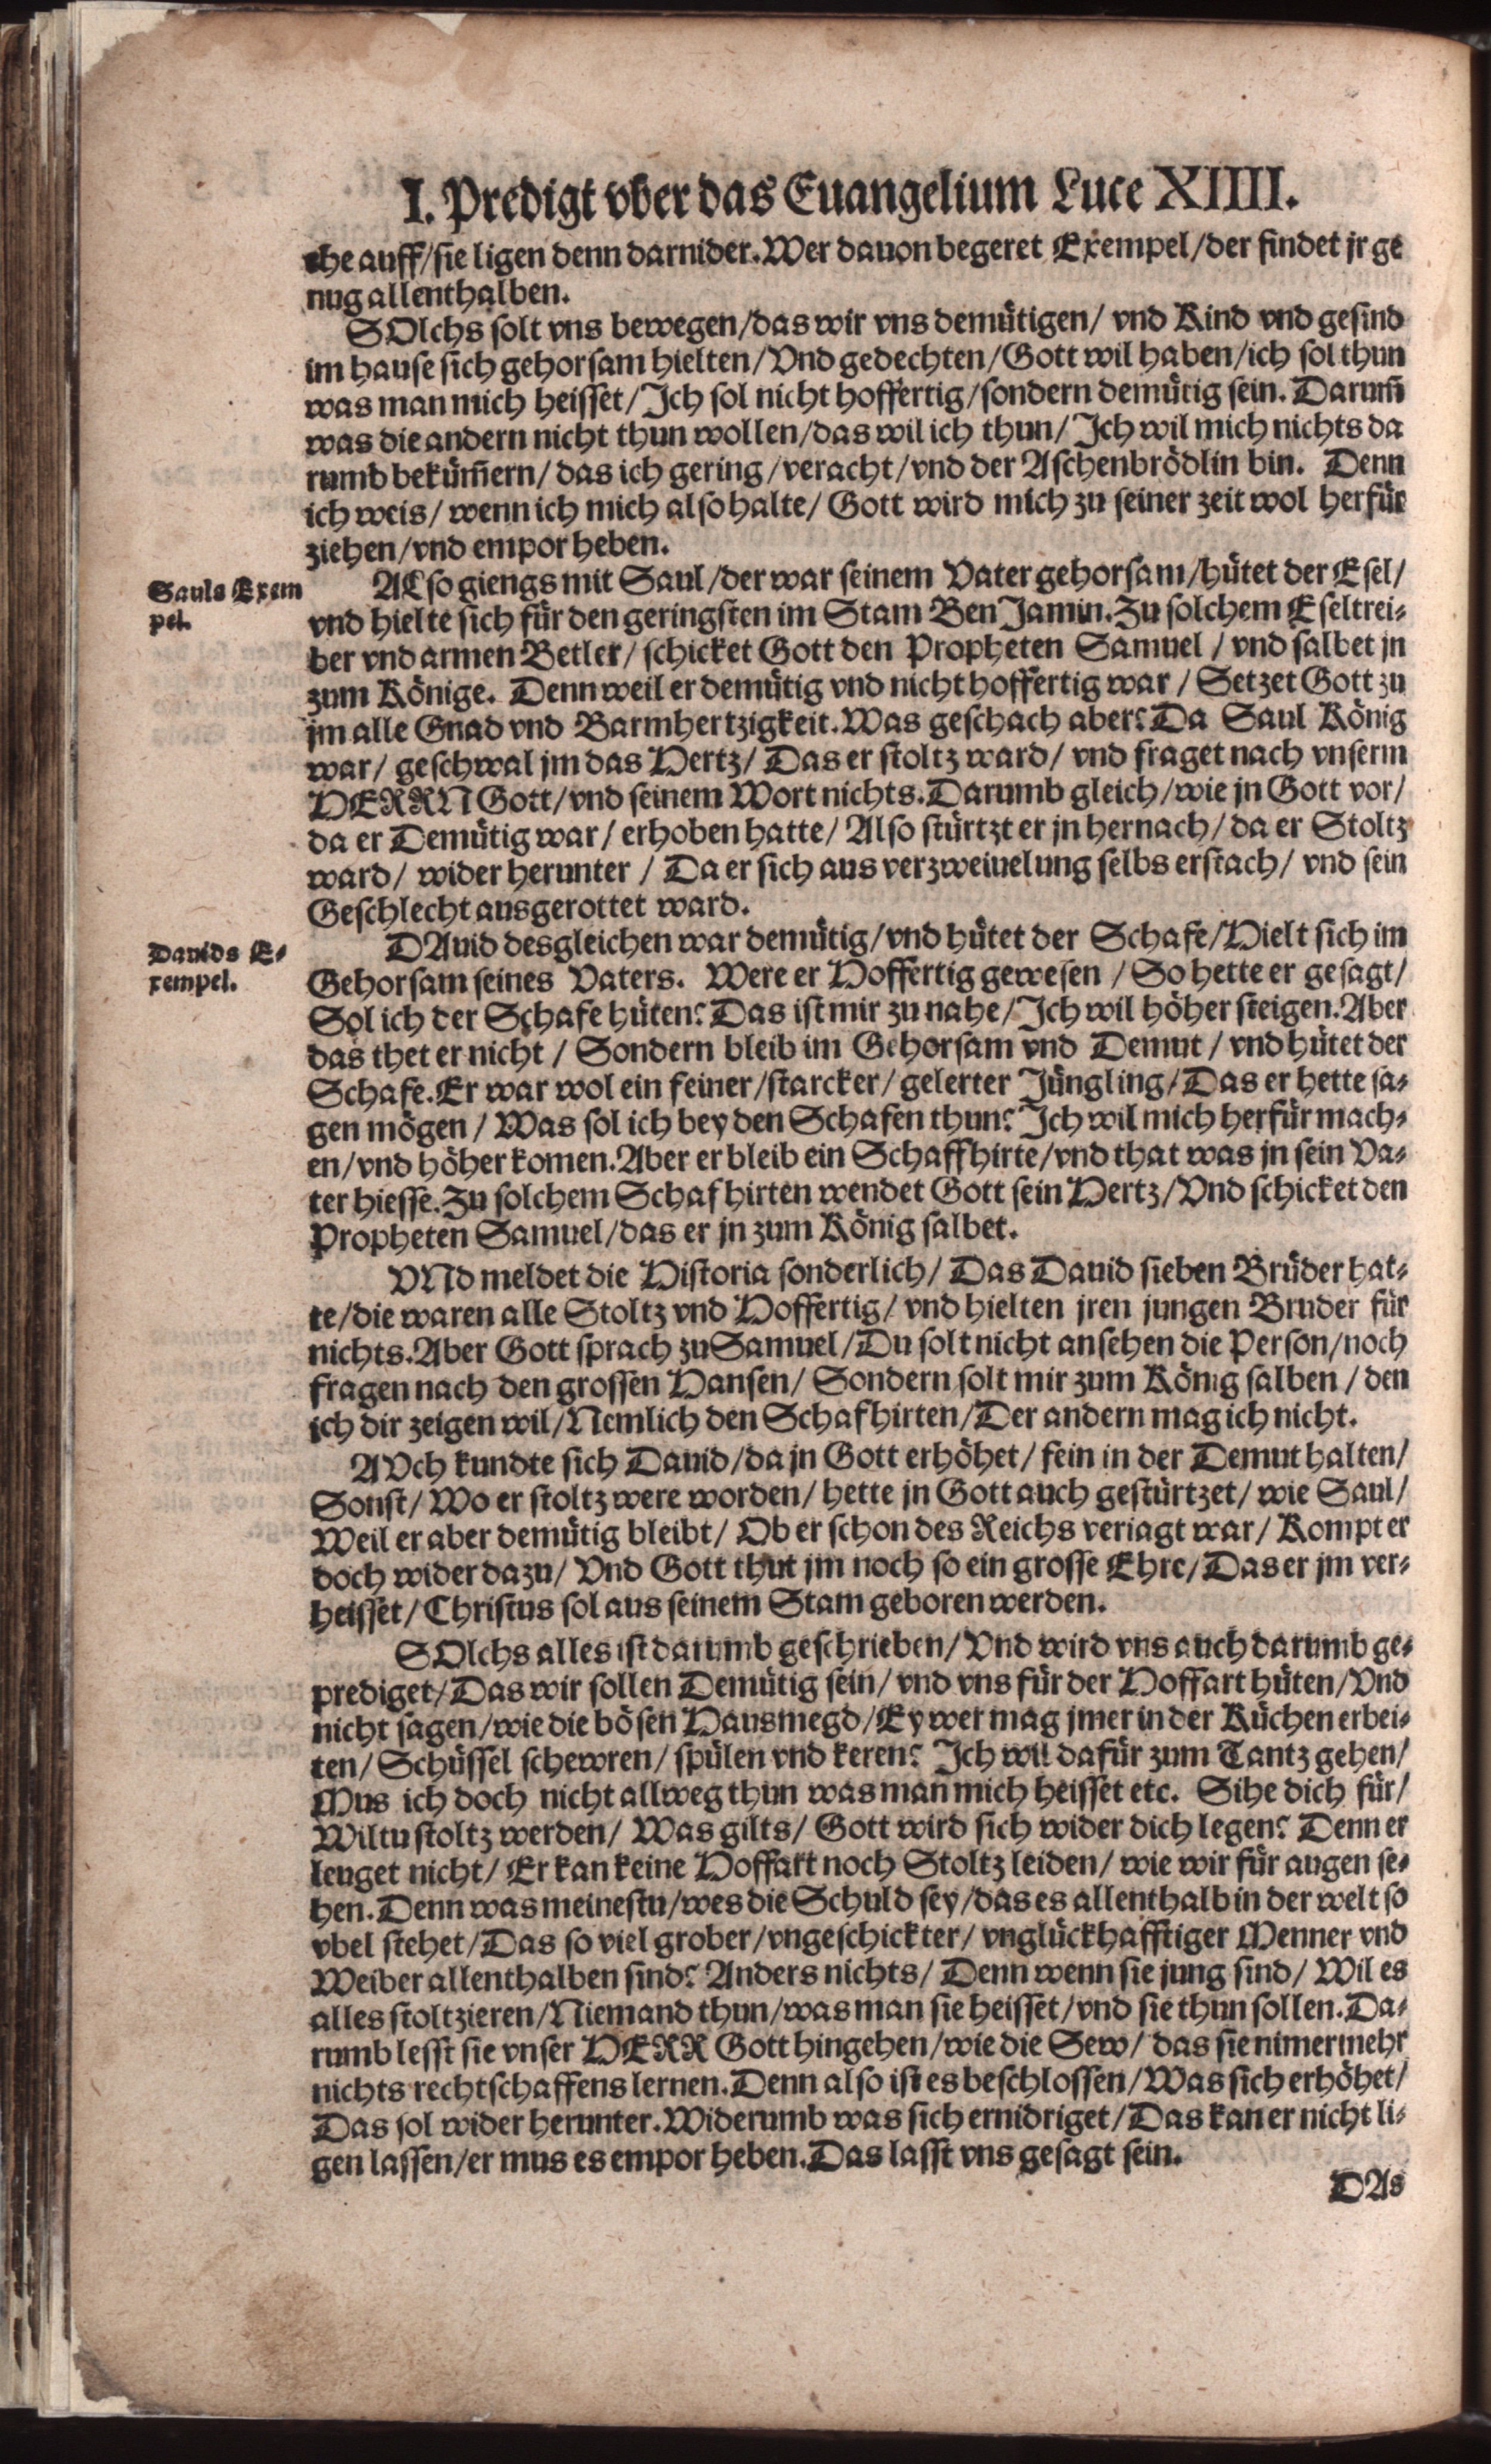 I. Predigt vber das Euangelium Luce XIIII.
ehe auff/sie ligen denn darnider. Wer dauon begeret Exempel/der findet jr ge
nug allenthalben.
SOlchs solt vns bewegen/das wir vns demütigen/ vnd Kind vnd gesind
im hause sich gehorsam hielten/Vnd gedechten/Gott wil haben/ich sol thun
was man mich heisset/Ich sol nicht hoffertig/sondern demütig sein. Darum̃
was die andern nicht thun wollen/das wil ich thun/Ich wil mich nichts da
rumb beküm̃ern/das ich gering/veracht/vnd der Aschenbrödlin bin. Denn
ich weis/ wenn ich mich also halte/ Gott wird mich zu seiner zeit wol herfür
ziehen/vnd empor heben.
Sauls Exem
pel.
ALso giengs mit Saul/der war seinem Vater gehorsam/hütet der Esel/
vnd hielte sich für den geringsten im Stam BenJamin. Zu solchem Eseltrei-
ber vnd armen Betler/ schicket Gott den Propheten Samuel / vnd salbet jn
zum Könige. Denn weil er demütig vnd nicht hoffertig war / Setzet Gott zu
jm alle Gnad vnd Barmhertzigkeit. Was geschach aber? Da Saul König
war/ geschwal jm das Hertz/ Das er stoltz ward/ vnd fraget nach vnserm
HERRN Gott/vnd seinem Wort nichts. Darumb gleich/wie jn Gott vor/
da er Demütig war/ erhoben hatte/ Also stürtzt er jn hernach/ da er Stoltz
ward/ wider herunter / Da er sich aus verzweiuelung selbs erstach/ vnd sein
Geschlecht ausgerottet ward.
Dauids E-
xempel.
DAuid desgleichen war demütig/vnd hütet der Schafe/Hielt sich im
Gehorsam seines Vaters. Were er Hoffertig gewesen / So hette er gesagt/
Sol ich der Schafe hüten? Das ist mir zu nahe/Ich wil höher steigen. Aber
das thet er nicht / Sondern bleib im Gehorsam vnd Demut / vnd hütet der
Schafe. Er war wol ein feiner/starcker/ gelerter Jüngling/Das er hette sa-
gen mögen / Was sol ich bey den Schafen thun? Ich wil mich herfür mach-
en/vnd höher komen. Aber er bleib ein Schaffhirte/vnd that was jn sein Va-
ter hiesse. Zu solchem Schafhirten wendet Gott sein Hertz/Vnd schicket den
Propheten Samuel/das er jn zum König salbet.
VNd meldet die Historia sonderlich/ Das Dauid sieben Brüder hat-
te/die waren alle Stoltz vnd Hoffertig/ vnd hielten jren jungen Bruder für
nichts. Aber Gott sprach zu Samuel/Du solt nicht ansehen die Person/noch
fragen nach den grossen Hansen/ Sondern solt mir zum König salben / den
ich dir zeigen wil/Nemlich den Schafhirten/Der andern mag ich nicht.
AVch kundte sich Dauid/da jn Gott erhöhet/ fein in der Demut halten/
Sonst/ Wo er stoltz were worden/ hette jn Gott auch gestürtzet/ wie Saul/
Weil er aber demütig bleibt/ Ob er schon des Reichs veriagt war/ Kompt er
doch wider dazu/ Vnd Gott thut jm noch so ein grosse Ehre/Das er jm ver-
heisset/Christus sol aus seinem Stam geboren werden.
SOlchs alles ist darumb geschrieben/Vnd wird vns auch darumb ge-
prediget/Das wir sollen Demütig sein/ vnd vns für der Hoffart hüten/Vnd
nicht sagen/wie die bösen Hausmegd/Ey wer mag jmer in der Küchen erbei-
ten/Schüssel schewren/ spülen vnd keren? Ich wil dafür zum Tantz gehen/
Mus ich doch nicht allweg thun was man mich heisset etc. Sihe dich für/
Wiltu stoltz werden/ Was gilts/ Gott wird sich wider dich legen? Denn er
leuget nicht/ Er kan keine Hoffart noch Stoltz leiden/ wie wir für augen se-
hen. Denn was meinestu/wes die Schuld sey/das es allenthalb in der welt so
vbel stehet/Das so viel grober/vngeschickter/ vnglückhafftiger Menner vnd
Weiber allenthalben sind? Anders nichts/ Denn wenn sie jung sind/ Wil es
alles stoltzieren/Niemand thun/was man sie heisset/vnd sie thun sollen. Da-
rumb lesst sie vnser HERR Gott hingehen/wie die Sew/ das sie nimermehr
nichts rechtschaffens lernen. Denn also ist es beschlossen/Was sich erhöhet/
Das sol wider herunter. Widerumb was sich ernidriget/Das kan er nicht li-
gen lassen/er mus es empor heben. Das lasst vns gesagt sein.
DAs